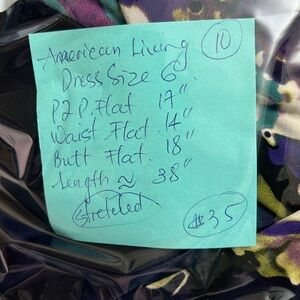 American Living 10
Dress Size 6
P2P. Flat 17"
Waist Flat. 14"
Butt Flat. 18"
Length ≈ 38"
Streteled
$35